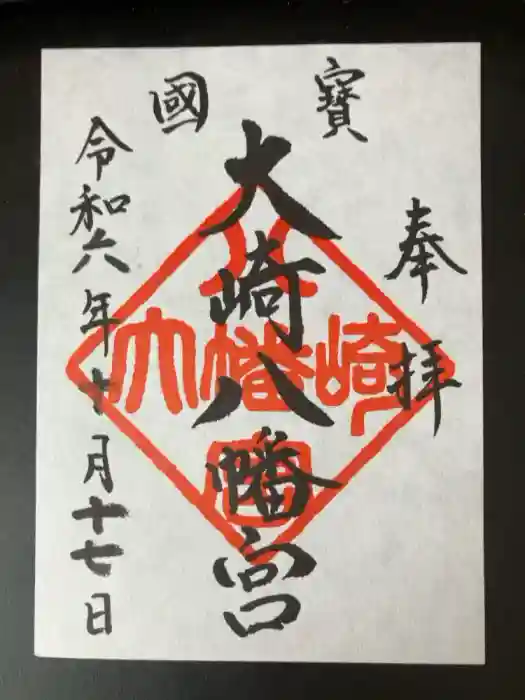 奉拝
寶國
大崎八幡宮
大崎八幡宮
令和六年十月十七日